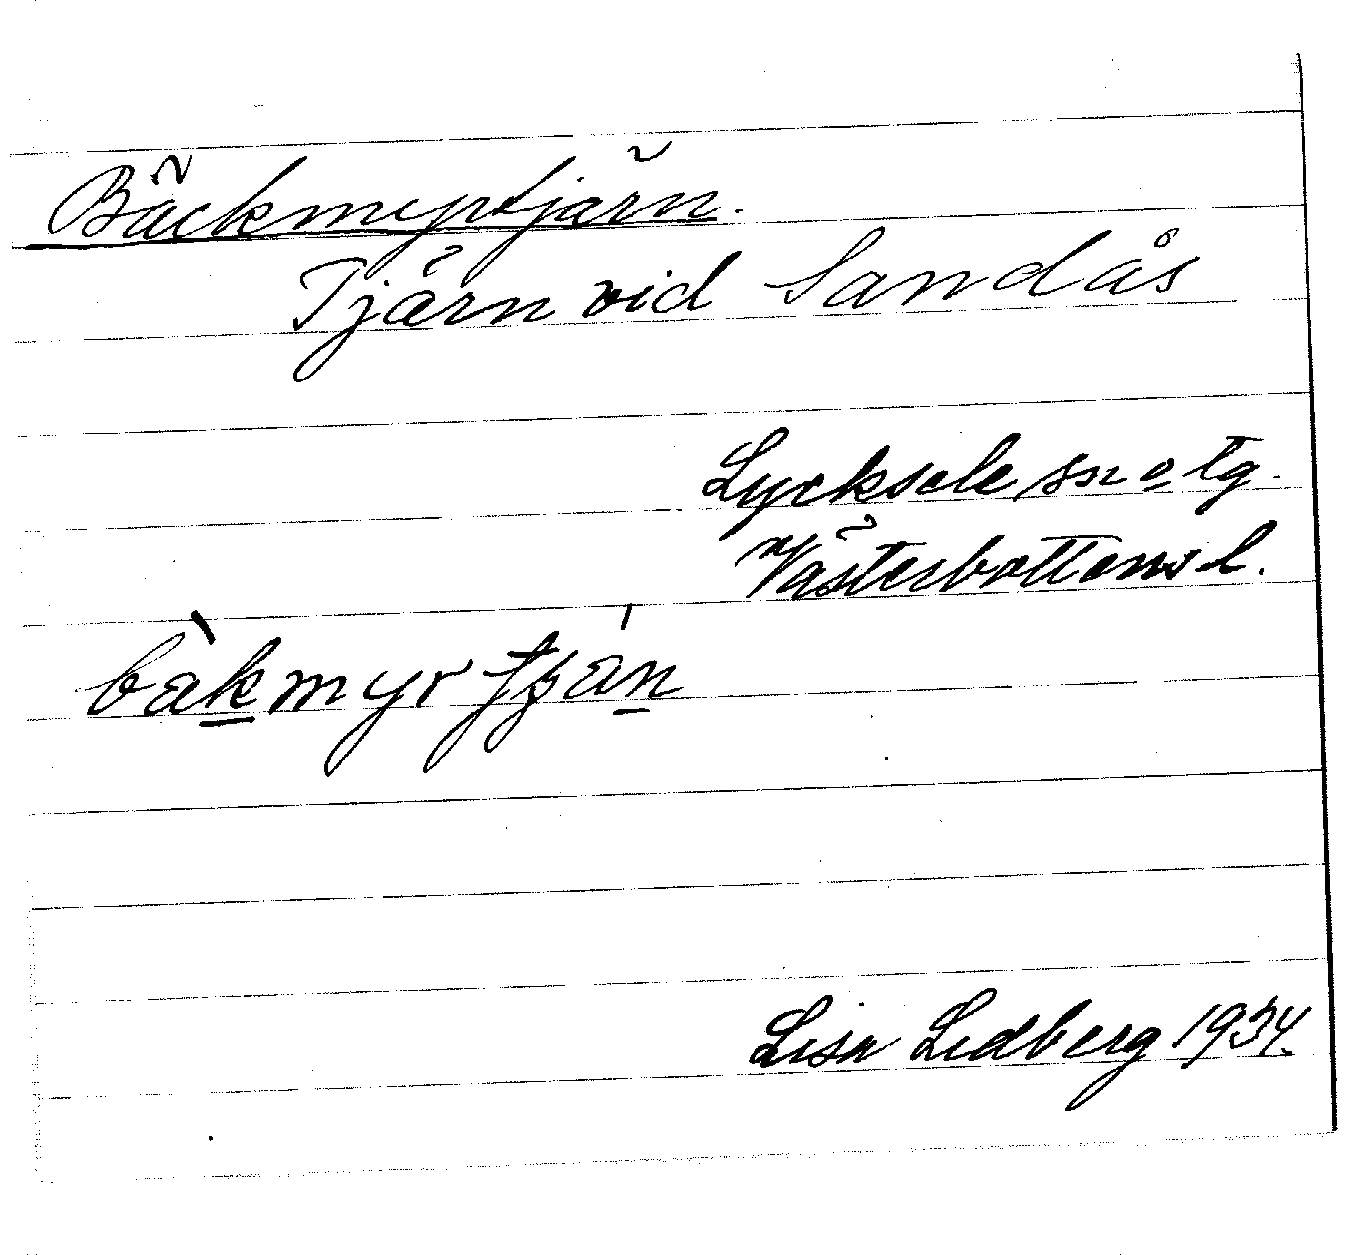 Bäckmyrtjärn.
Tjärn vid Sandås
Lycksele sn o tg.
Västerbottens l.
bàkmyrtján
Lisa Lidberg 1934.